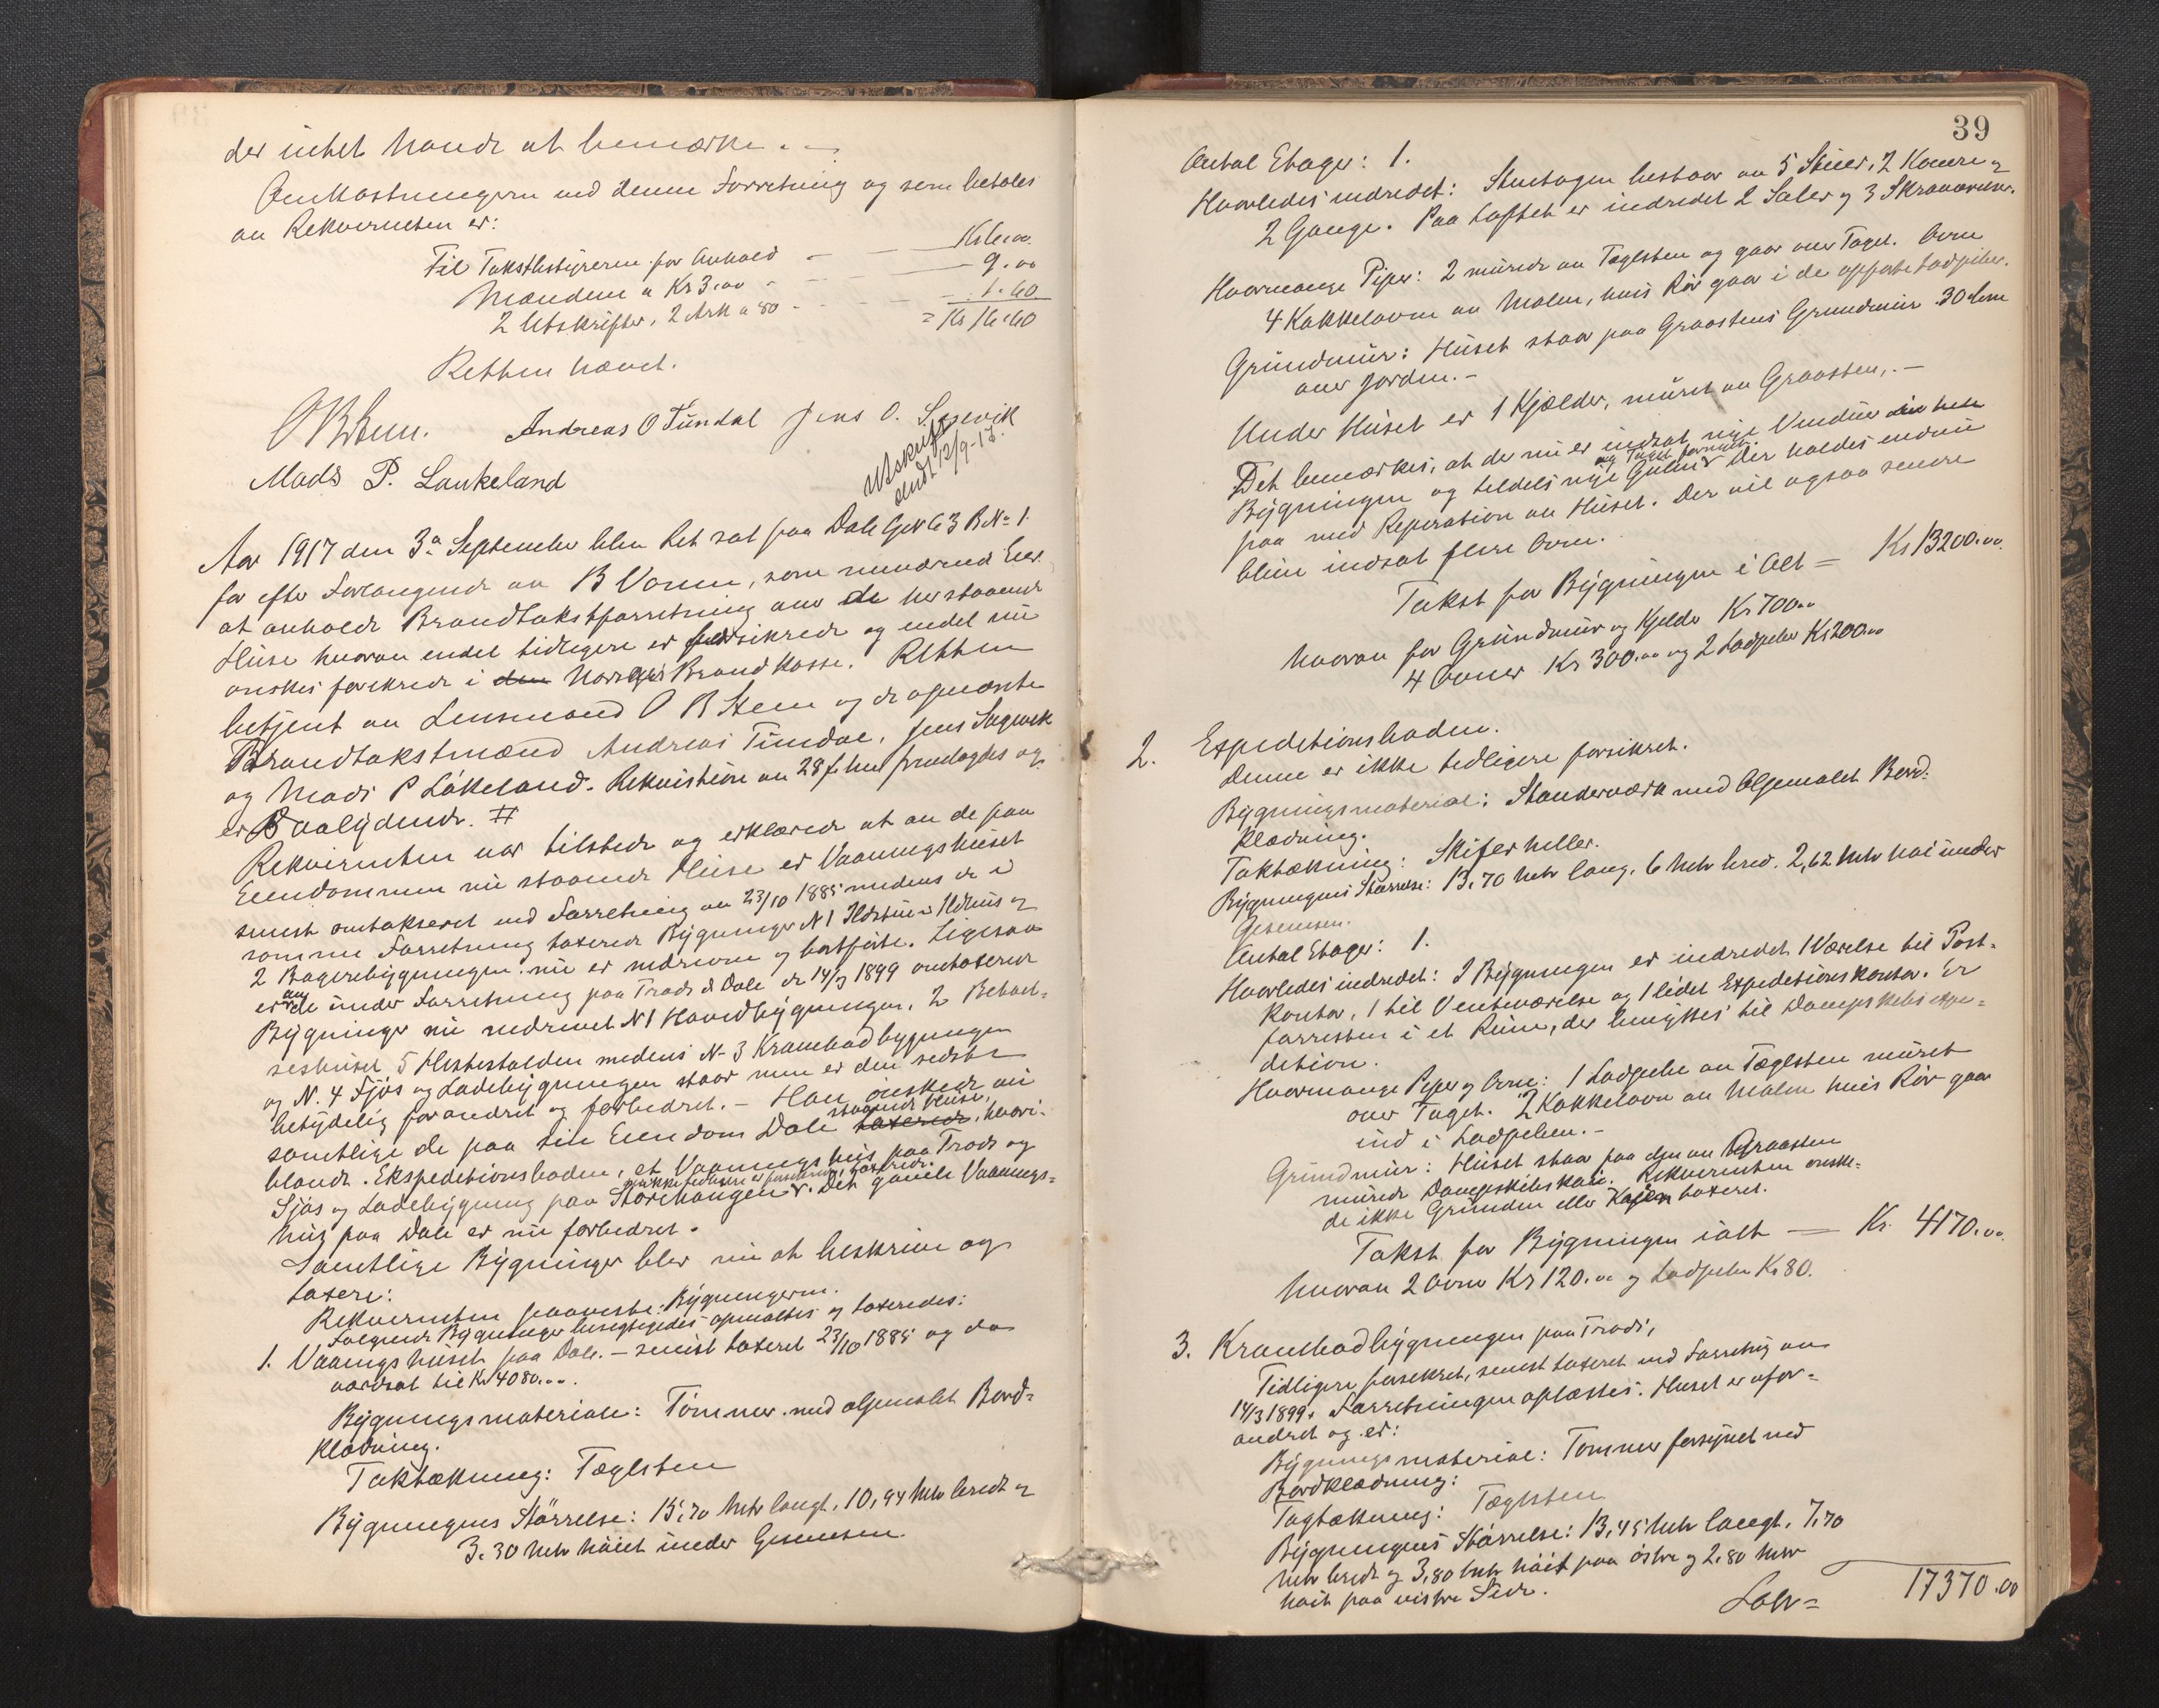 der intet havde at bemærke. —
Omkostningerne ved denne Forretning og som betales
av Rekvirenten er:
Til Takstbestyreren for Avhold — Kr 6.00
Mændene a Kr 3.00 - 9.00
2 Utskrifter, 2 Ark a 80 - 1.60
= Kr 16.60
Retten hævet.
O B Steen. Andreas O Tundal Jens O. Sagevik
Mads P. Laukeland
Utskrift
sendt 12/9-17.
Aar 1917 den 3a September blev Ret sat paa Dale GNo 63 BNo 1.
for efter Forlangende av B Vonen, som nuværende Eier
at avholde Brandtakstforretning over de herstaaende
Huse hvorav endel tidligere er forsikrede og endel nu
ønskes forsikrede i den Norges Brandkasse. Retten
betjent av Lensmand O B Steen og de opnævnte
Brandtakstmænd Andreas Tundal, Jens Sagevik
og Mads P Låkeland. Rekvisition av 28 f. m. fremlagdes og
er saalydende. #
Rekvirenten var tilstede og erklærede at av de paa
Eiendommen nu staaende Huse er Vaaningshuset
senest omtakseret ved Forretning av 23/10 1885 medens de i
samme Forretning taxerede Bygninger N 1 Ildstue Ildhus og
2 Bagerebygningen nu er nedrevne og bortførte. Ligesaa
er av de under Forretning paa Trads & Dale de 14/3 1899 omtaxerede
Bygninger nu nedrevet N 1 Hovedbygningen, 2 Behoel-
seshuset, 5 Hestestalden medens N- 3 Krambodbygningen
og N. 4 Fjøs og Ladebygningen staar men er den sidste
betydelig forandret og forbedret. — Han ønskede nu
samtlige de paa sin Eiendom Dale taxerede staaende Huse, hvori-
blandt Ekspeditionsboden, et Vaaningshus paa Trads og
Fjøs og Ladebygning paa Storehaugen som ikke tidligere er forsikret, taxerede. Det gamle Vaanings-
hus paa Dale er nu forbedret.
Samtlige Bygninger blev nu at beskrive og
taxere:
Rekvirenten paaviste Bygningerne.
Følgende Bygninger besigtigedes opmaaltes og taxeredes:
1. Vaaningshuset paa Dale. — senest taxeret 23/10 1885 og da
værdsat til Kr 4080.00.
Bygningsmateriale: Tømmer med oljemalet Bord-
klædning.
Taktækning: Tæglsten
Bygningens Størrelse: 15,70 Mtr langt, 10,94 Mtr bredt og
3.30 Mtr høiet under Gesemsen.
39
Antal Etager: 1.
Hvorledes indredet: Stuetagen bestaar av 5 Stuer, 2 Kamre og
2 Gange. Paa Loftet er indredet 2 Saler og 3 Skraaværelser.
Hvormange Piper: 2 murede av Tæglsten og gaar over Taget. Ovne
4 Kakkelovne av Malm, hvis Rør gaar i de opførte Ladpiber.
Grundmur: Huset staar paa Graastens Grundmur 30 Ctm
over Jorden. —
Under Huset er 1 Kjælder, muret av Graasten. —
Det bemærkes, at der nu er indsat nye Vinduer i hele
Bygningen og tildels nye Gulve og Taget fornyet. Der holdes endnu
paa med Reperation av Huset. Der vil ogsaa senere
blive indsat flere Ovne.
Takst for Bygningen i Alt = Kr 13200.00.
hvorav for Grundmur og Kjelder Kr 700.00
4 Ovner Kr 300.00 og 2 Ladpiber Kr 200.00
2. Expeditionsboden.
Denne er ikke tidligere forsikret.
Bygningsmaterial: Standerværk med Oljemalet Bord-
klædning.
Taktækning: Skiferheller.
Bygningens Størrelse: 13,70 Mtr lang, 6 Mtr bred. 2,62 Mtr høi under
Gesemsen.
Antal Etager: 1.
Hvorledes indredet: I Bygningen er indredet 1 Værelse til Post-
kontor, 1 til Venteværelse og 1 lidet Expeditionskontor. Er
forresten i et Rum, der benyttes til Dampskibsexpe-
dition.
Hvormange Piper og Ovne: 1 Ladpibe av Tæglsten muret
over Taget. 2 Kakkelovne av Malm hvis Rør gaar
ind i Ladpiben. —
Grundmur: Huset staar paa den av Graasten
murede Dampskibskai. Rekvirenten ønske-
de ikke Grunden eller Kajen taxeret.
Takst for Bygningen ialt — Kr. 4170.00.
hvorav 2 Ovne Kr 120.00 og Ladpibe Kr 80.
3. Krambodbygningen paa Trads,
Tidligere forsikret, senest taxeret ved Forretning av
14/3 1899. Forretningen oplæstes. Huset er ufor-
andret og er:
Bygningsmaterial: Tømmer forsynet med
Bordklædning:
Tagtækning: Tæglsten
Bygningens Størrelse: 13,45 Mtr langt, 7,70
Mtr bredt og 3,80 Mtr høit paa østre og 2,80 Mtr
høit paa vestre Side.
Latr= 17370.00